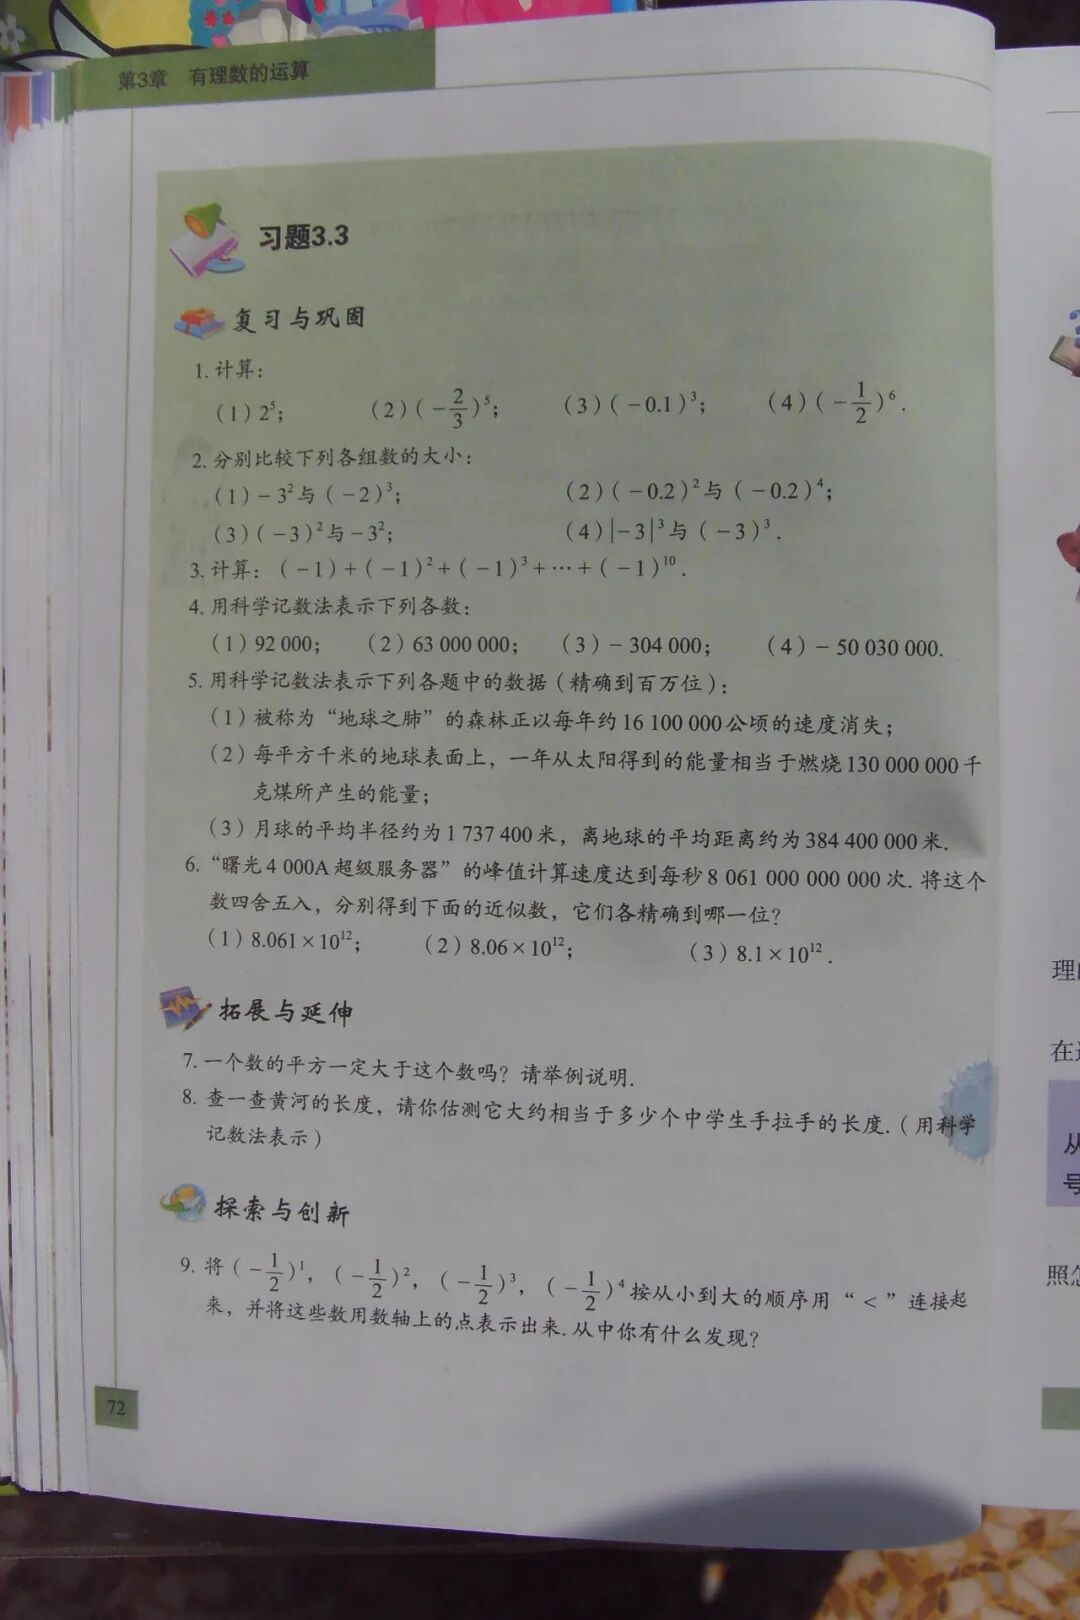 第3章 有理数的运算
习题3.3
复习与巩固
1. 计算：
(1) 2⁵； (2) (-2/3)⁵； (3) (-0.1)³； (4) (-1/2)⁶.
2. 分别比较下列各组数的大小：
(1) -3²与(-2)³； (2) (-0.2)²与(-0.2)⁴；
(3) (-3)²与-3²； (4) |-3|³与(-3)³.
3. 计算：(-1)+(-1)²+(-1)³+…+(-1)¹⁰.
4. 用科学记数法表示下列各数：
(1) 92 000； (2) 63 000 000； (3) -304 000； (4) -50 030 000.
5. 用科学记数法表示下列各题中的数据（精确到百万位）：
(1) 被称为“地球之肺”的森林正以每年约16 100 000公顷的速度消失；
(2) 每平方千米的地球表面上，一年从太阳得到的能量相当于燃烧130 000 000千
克煤所产生的能量；
(3) 月球的平均半径约为1 737 400米，离地球的平均距离约为384 400 000米.
6. “曙光4 000A超级服务器”的峰值计算速度达到每秒8 061 000 000 000次. 将这个
数四舍五入，分别得到下面的近似数，它们各精确到哪一位？
(1) 8.061×10¹²； (2) 8.06×10¹²； (3) 8.1×10¹².
拓展与延伸
7. 一个数的平方一定大于这个数吗？请举例说明.
8. 查一查黄河的长度，请你估测它大约相当于多少个中学生手拉手的长度.（用科学
记数法表示）
探索与创新
9. 将(-1/2)¹，(-1/2)²，(-1/2)³，(-1/2)⁴按从小到大的顺序用“<”连接起
来，并将这些数用数轴上的点表示出来. 从中你有什么发现？
72
理
在
从
号
照